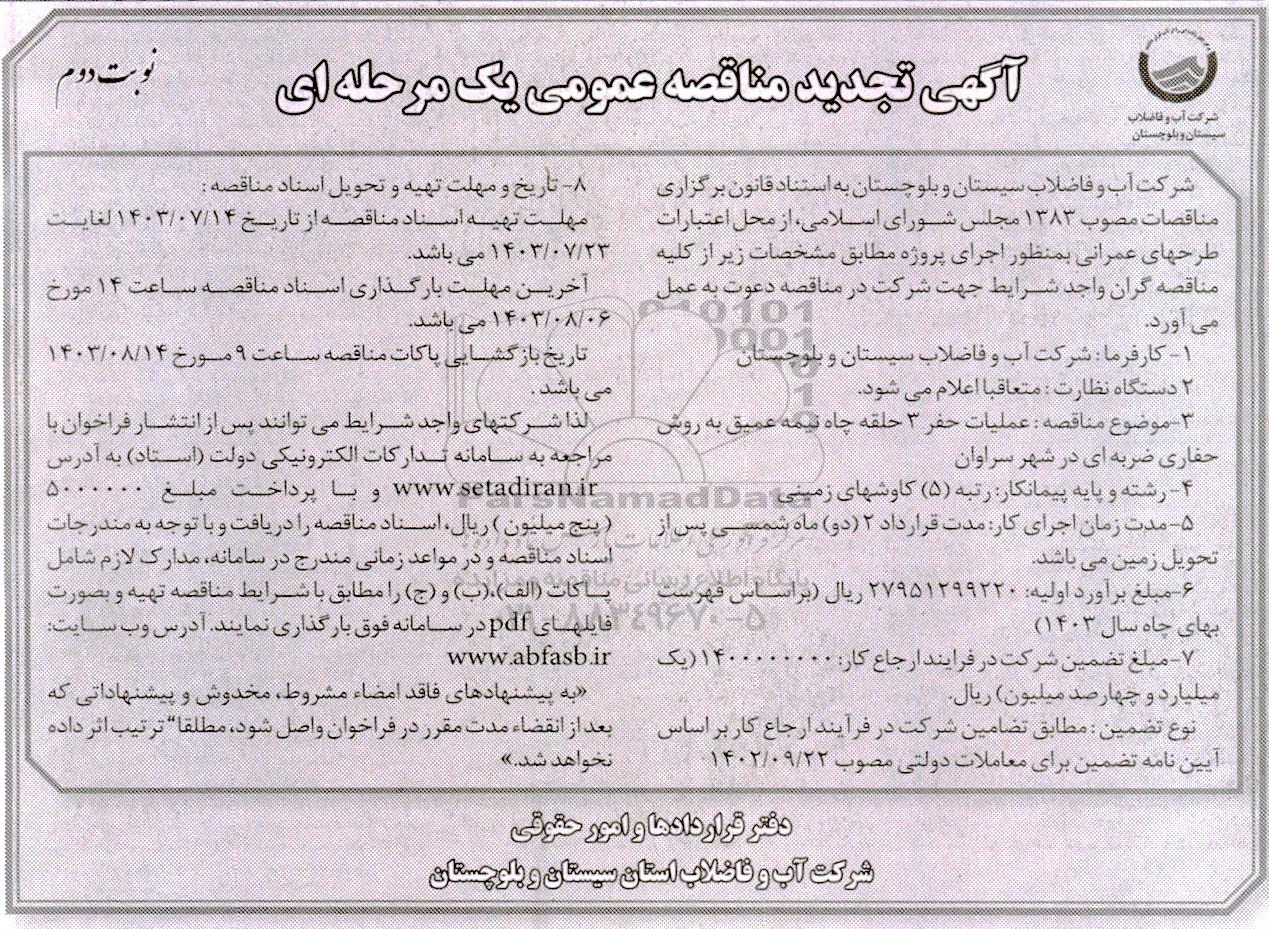 شرکت آب و فاضلاب
سیستان و بلوچستان
آگهی تجدید مناقصه عمومی یک مرحله ای
نوبت دوم
شرکت آب و فاضلاب سیستان و بلوچستان به استناد قانون برگزاری
مناقصات مصوب ۱۳۸۳ مجلس شورای اسلامی، از محل اعتبارات
طرحهای عمرانی بمنظور اجرای پروژه مطابق مشخصات زیر از کلیه
مناقصه گران واجد شرایط جهت شرکت در مناقصه دعوت به عمل
می آورد.
۱- کارفرما : شرکت آب و فاضلاب سیستان و بلوچستان
۲ دستگاه نظارت : متعاقبا اعلام می شود.
۳-موضوع مناقصه : عملیات حفر ۳ حلقه چاه نیمه عمیق به روش
حفاری ضربه ای در شهر سراوان
۴- رشته و پایه پیمانکار: رتبه (۵) کاوشهای زمینی
۵-مدت زمان اجرای کار: مدت قرارداد ۲ (دو) ماه شمسی پس از
تحویل زمین می باشد.
۶-مبلغ برآورد اولیه: ۲۷۹۵۱۲۹۹۲۲۰ ریال (براساس فهرست
بهای چاه سال ۱۴۰۳)
۷-مبلغ تضمین شرکت در فرایند ارجاع کار: ۱۴۰۰۰۰۰۰۰۰ (یک
میلیارد و چهارصد میلیون) ریال.
نوع تضمین : مطابق تضامین شرکت در فرآیند ارجاع کار بر اساس
آیین نامه تضمین برای معاملات دولتی مصوب ۱۴۰۲/۰۹/۲۲
۸- تاریخ و مهلت تهیه و تحویل اسناد مناقصه :
مهلت تهیه اسناد مناقصه از تاریخ ۱۴۰۳/۰۷/۱۴ لغایت
۱۴۰۳/۰۷/۲۳ می باشد.
آخرین مهلت بارگذاری اسناد مناقصه ساعت ۱۴ مورخ
۱۴۰۳/۰۸/۰۶ می باشد.
تاریخ بازگشایی پاکات مناقصه ساعت ۹ مورخ ۱۴۰۳/۰۸/۱۴
می باشد .
لذا شرکتهای واجد شرایط می توانند پس از انتشار فراخوان با
مراجعه به سامانه تدارکات الکترونیکی دولت (استاد) به آدرس
www.setadiran.ir و با پرداخت مبلغ ۵۰۰۰۰۰۰
(پنج میلیون) ریال، اسناد مناقصه را دریافت و با توجه به مندرجات
اسناد مناقصه و در مواعد زمانی مندرج در سامانه، مدارک لازم شامل
پاکات (الف)،(ب) و (ج) را مطابق با شرایط مناقصه تهیه و بصورت
فایلهای pdf در سامانه فوق بارگذاری نمایند. آدرس وب سایت:
www.abfasb.ir
«به پیشنهادهای فاقد امضاء مشروط، مخدوش و پیشنهاداتی که
بعد از انقضاء مدت مقرر در فراخوان واصل شود، مطلقا" ترتیب اثر داده
نخواهد شد.»
دفتر قراردادها و امور حقوقی
شرکت آب و فاضلاب استان سیستان و بلوچستان
ParsNamadData
پایگاه اطلاع رسانی مناقصه و مزایده
۰۲۱-۸۸۳۴۹۶۷۰-۵